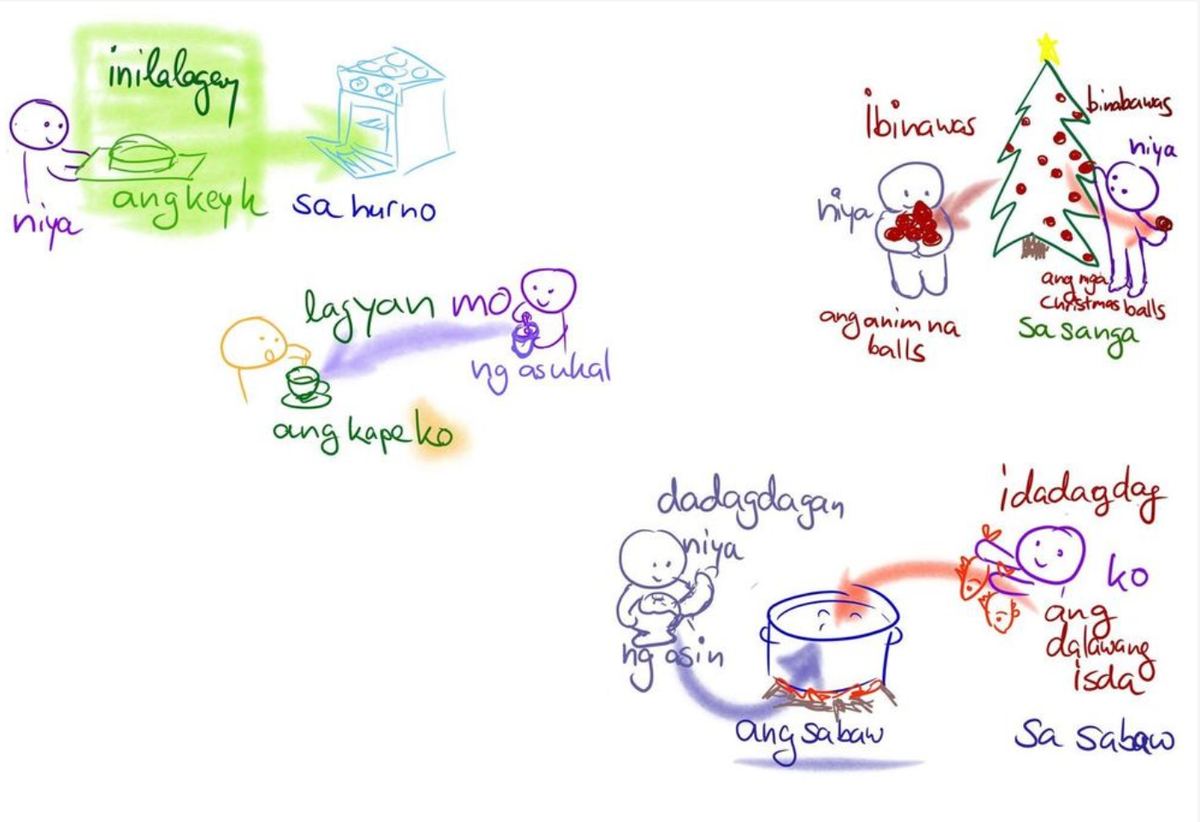 inilalagay
niya
ang keyk
sa hurno
lagyan mo
ng asukal
ang kape ko
Ibinawas
niya
ang anim na
balls
binabawas
niya
ang mga
Christmas balls
sa sanga
dadagdagan
niya
ng asin
ang sabaw
idadagdag
ko
ang
dalawang
isda
sa sabaw